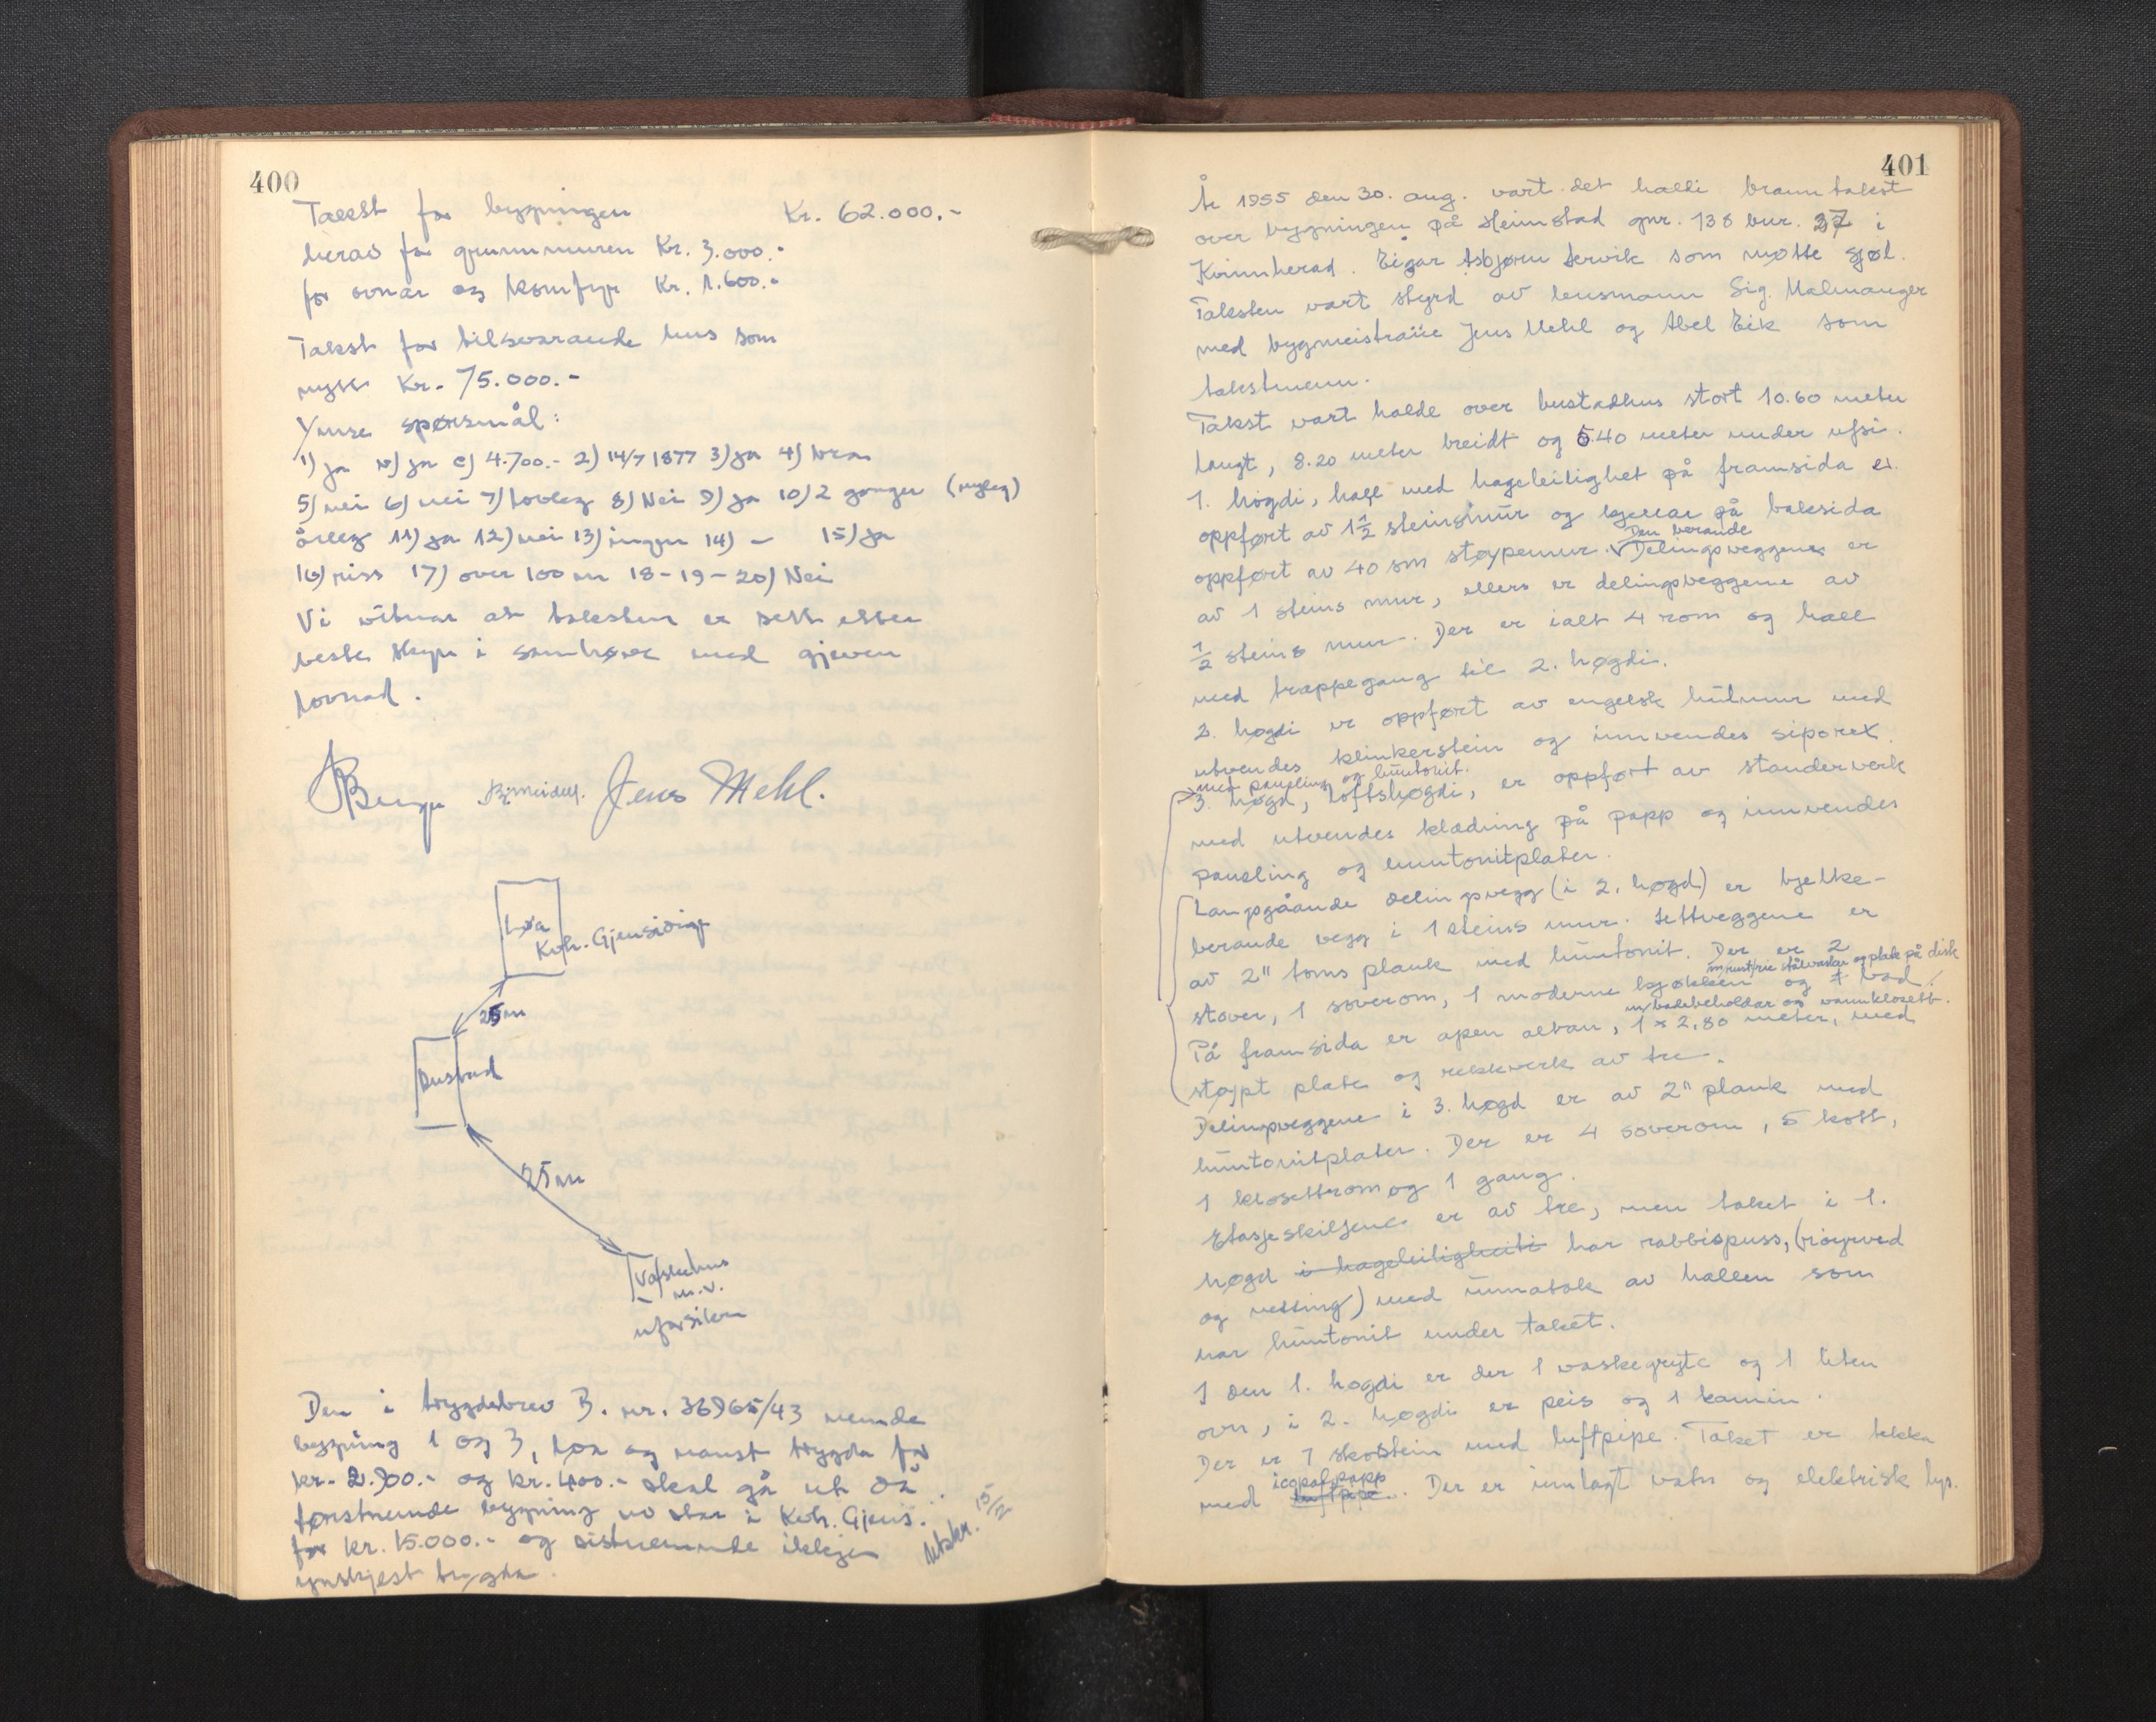 400
Takst for bygningen Kr. 62.000.-
herav for grunnmuren Kr. 3.000.-
for ovnar og komfyr Kr. 1.600.-
Takst for tilsvarande hus som
nytt Kr. 75.000.-
Ymse spørsmål:
1) ja b) ja c) 4.700.- 2) 14/7 1877 3) ja 4) bra
5) nei 6) nei 7) lovleg 8) Nei 9) ja 10) 2 gonger (nyleg)
årleg 11) ja 12) nei 13) ingen 14) - 15) ja
16) riss 17) over 100 m 18-19-20) Nei
Vi vitnar at taksten er sett etter
beste skjøn i samhøve med gjeven
lovnad.
Jens Mehl.
Løa
Kvh. Gjensidige
25 m
Bustad
25 m
m.v.
Den i trygdebrev B. nr. 36965/43 nemnde
bygning 1 og 3, løa og naust trygda for
kr. 2.900.- og kr. 400.- skal gå ut då
førstnemnde bygning no står i Kvh. Gjens.
for kr. 15.000.- og sistnemnde ikkje
ynskjest trygda.
Utskr. 15/2
401
År 1955 den 30. aug. vart det haldi branntakst
over bygningen på Heimstad gnr. 138 bnr. 37 i
Kvinnherad. Eigar Asbjørn Servik som møtte sjøl.
Taksten vart styrd av lensmann Sig. Malmanger
med bygmeistrane Jens Mehl og Abel Eik som
takstmenn.
Takst vart halde over bustadhus stort 10.60 meter
langt, 8.20 meter breidt og 5.40 meter under ufsi.
1. høgdi, hall med hageleilighet på framsida er
oppført av 1½ steinsmur og kjellar på baksida
Den berande
oppført av 40 sm støypemur. Delingsveggene er
av 1 steins mur, ellers er delingsveggene av
½ steins mur. Der er ialt 4 rom og hall
med trappegang til 2. høgdi.
2. høgdi er oppført av engelsk hulmur med
utvendes klinkerstein og innvendes siporex.
med paneling og huntonit.
3. høgd, loftshøgdi, er oppført av standerverk
med utvendes klædning på papp og innvendes
paneling og huntonitplater.
Langsgåande delingsvegg (i 2. høgd) er bjelke-
berande vegg i 1 steins mur. Lettveggene er
av 2" toms plank med huntonit. Der er 2
m/rustfrie stålvaskar og plate på disk
stover, 1 soverom, 1 moderne kjøkken og 1 bad.
m/badebeholdar og vannklosett.
På framsida er open altan, 1 x 2,80 meter, med
støypt plate og rekkverk av tre.
Delingsveggene i 3. høgd er av 2" plank med
huntonitplater. Der er 4 soverom, 5 kott,
1 klosettrom og 1 gang.
Etasjeskiljene er av tre, men taket i 1.
høgd i hageleiligheti har rabbispuss, (röyrved
og netting) med unnatak av hallen som
har huntonit under taket.
I den 1. høgdi er der 1 vaskegryte og 1 liten
ovn, i 2. høgdi er peis og 1 kamin.
Der er 1 skorstein med luftpipe. Taket er tekka
icopalpapp
med luftpipe. Der er innlagt vatn og elektrisk lys.